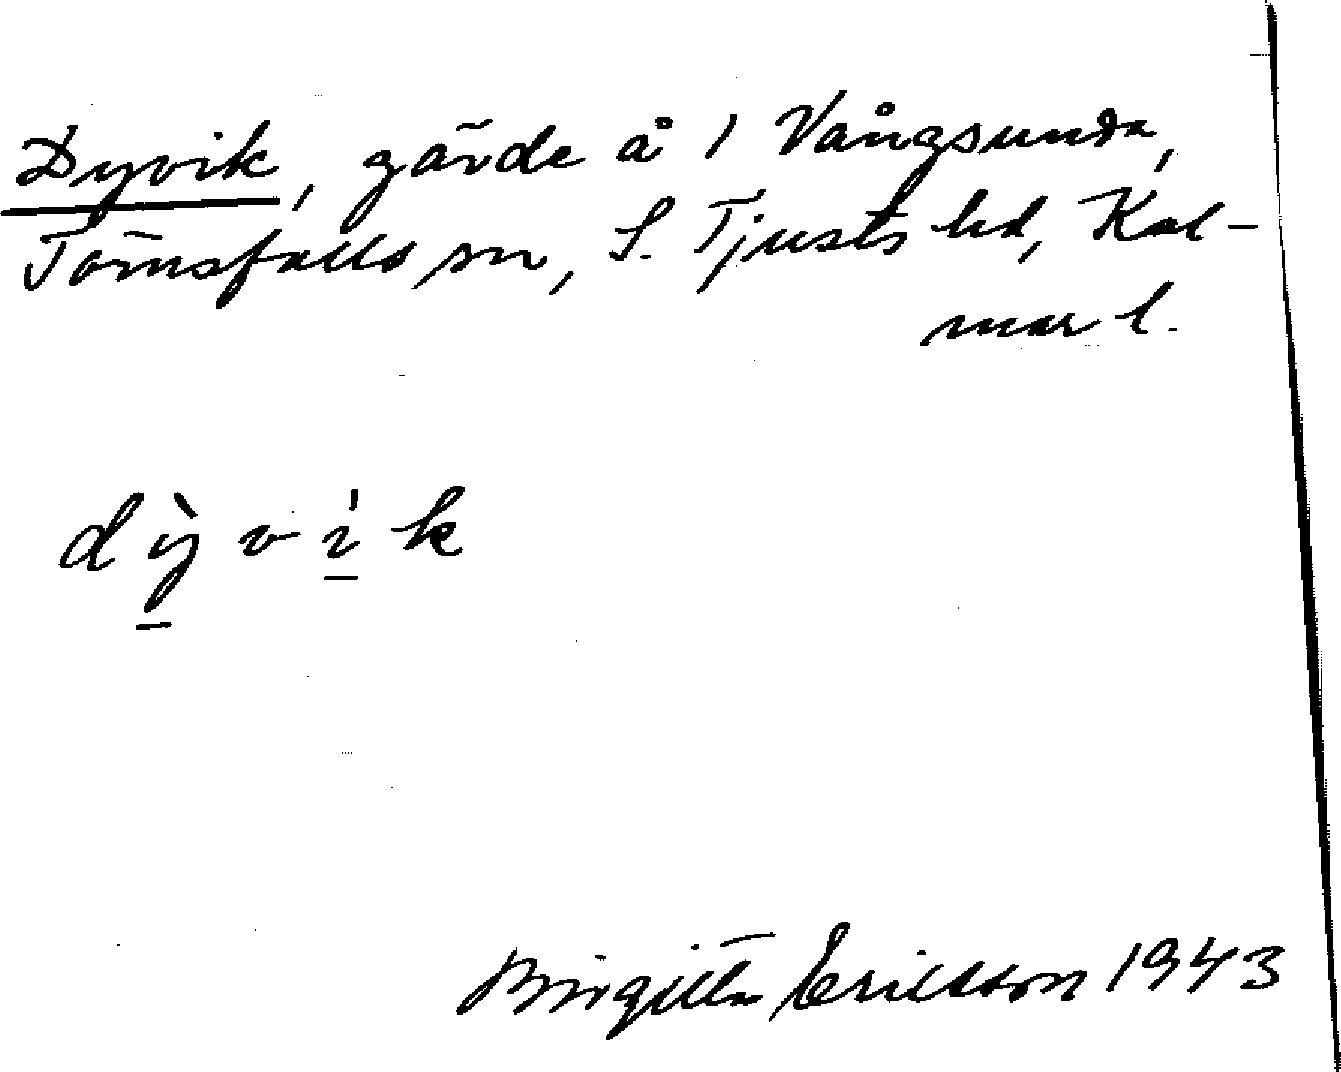 Dyvik, gärde å 1 Vångsunda,
Törnsfalls sn, S. Tjusts hd, Kal-
mar l.
dỳvík
Birgitta Ericsson 1943